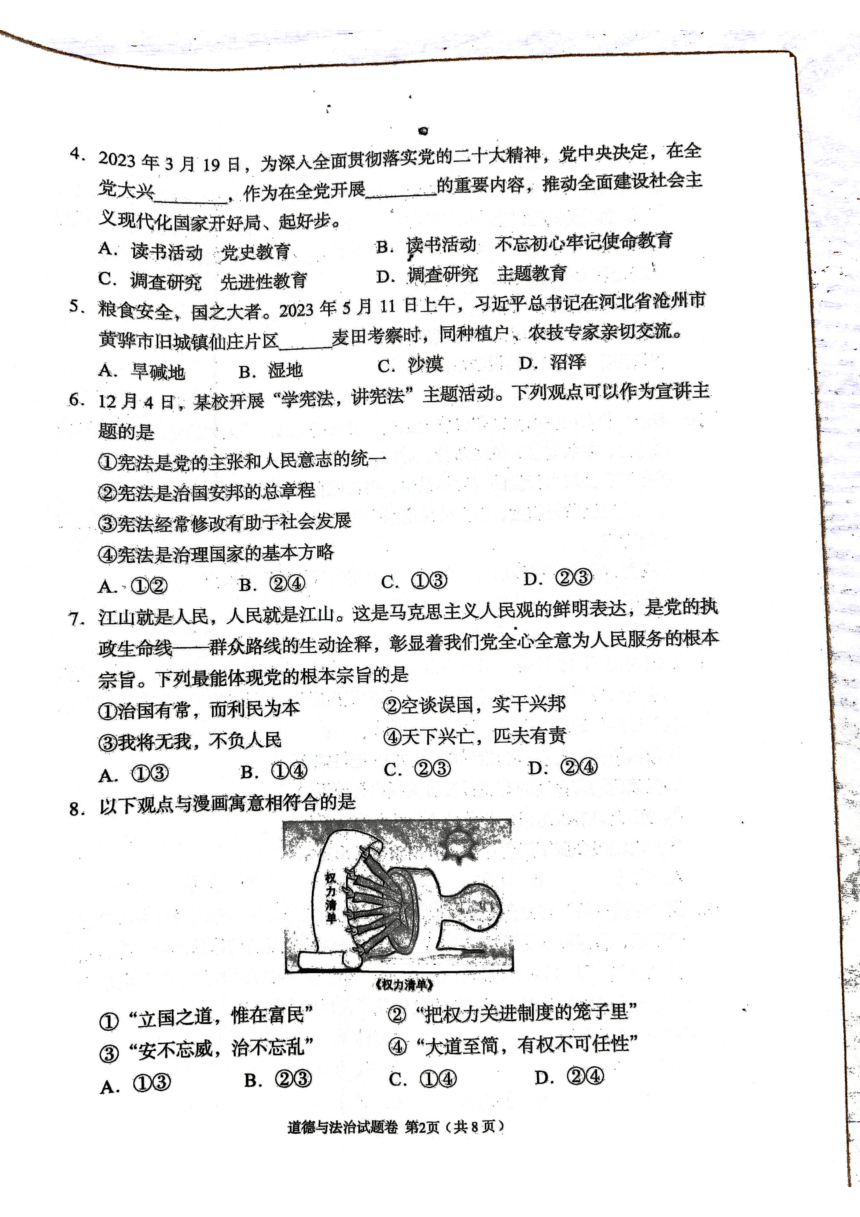 4. 2023 年 3 月 19 日，为深入全面贯彻落实党的二十大精神，党中央决定，在全
党大兴________，作为在全党开展________的重要内容，推动全面建设社会主
义现代化国家开好局、起好步。
A. 读书活动 党史教育 B. 读书活动 不忘初心牢记使命教育
C. 调查研究 先进性教育 D. 调查研究 主题教育
5. 粮食安全，国之大者。2023 年 5 月 11 日上午，习近平总书记在河北省沧州市
黄骅市旧城镇仙庄片区______麦田考察时，同种植户、农技专家亲切交流。
A. 旱碱地 B. 湿地 C. 沙漠 D. 沼泽
6. 12 月 4 日，某校开展“学宪法，讲宪法”主题活动。下列观点可以作为宣讲主
题的是
①宪法是党的主张和人民意志的统一
②宪法是治国安邦的总章程
③宪法经常修改有助于社会发展
④宪法是治理国家的基本方略
A. ①② B. ②④ C. ①③ D. ②③
7. 江山就是人民，人民就是江山。这是马克思主义人民观的鲜明表达，是党的执
政生命线——群众路线的生动诠释，彰显着我们党全心全意为人民服务的根本
宗旨。下列最能体现党的根本宗旨的是
①治国有常，而利民为本 ②空谈误国，实干兴邦
③我将无我，不负人民 ④天下兴亡，匹夫有责
A. ①③ B. ①④ C. ②③ D. ②④
8. 以下观点与漫画寓意相符合的是
权力清单
《权力清单》
①“立国之道，惟在富民” ②“把权力关进制度的笼子里”
③“安不忘威，治不忘乱” ④“大道至简，有权不可任性”
A. ①③ B. ②③ C. ①④ D. ②④
道德与法治试题卷 第2页（共 8 页）